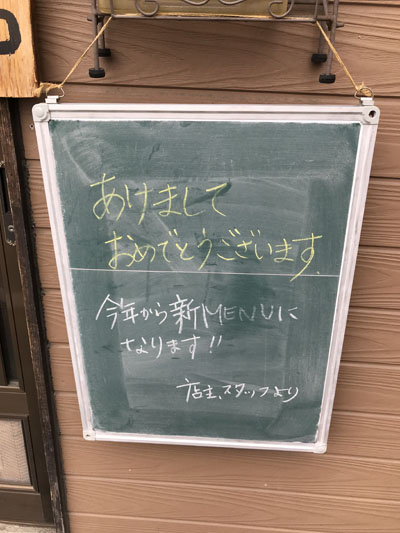 あけまして
おめでとうございます
今年から新MENUに
なります!!
店主、スタッフより